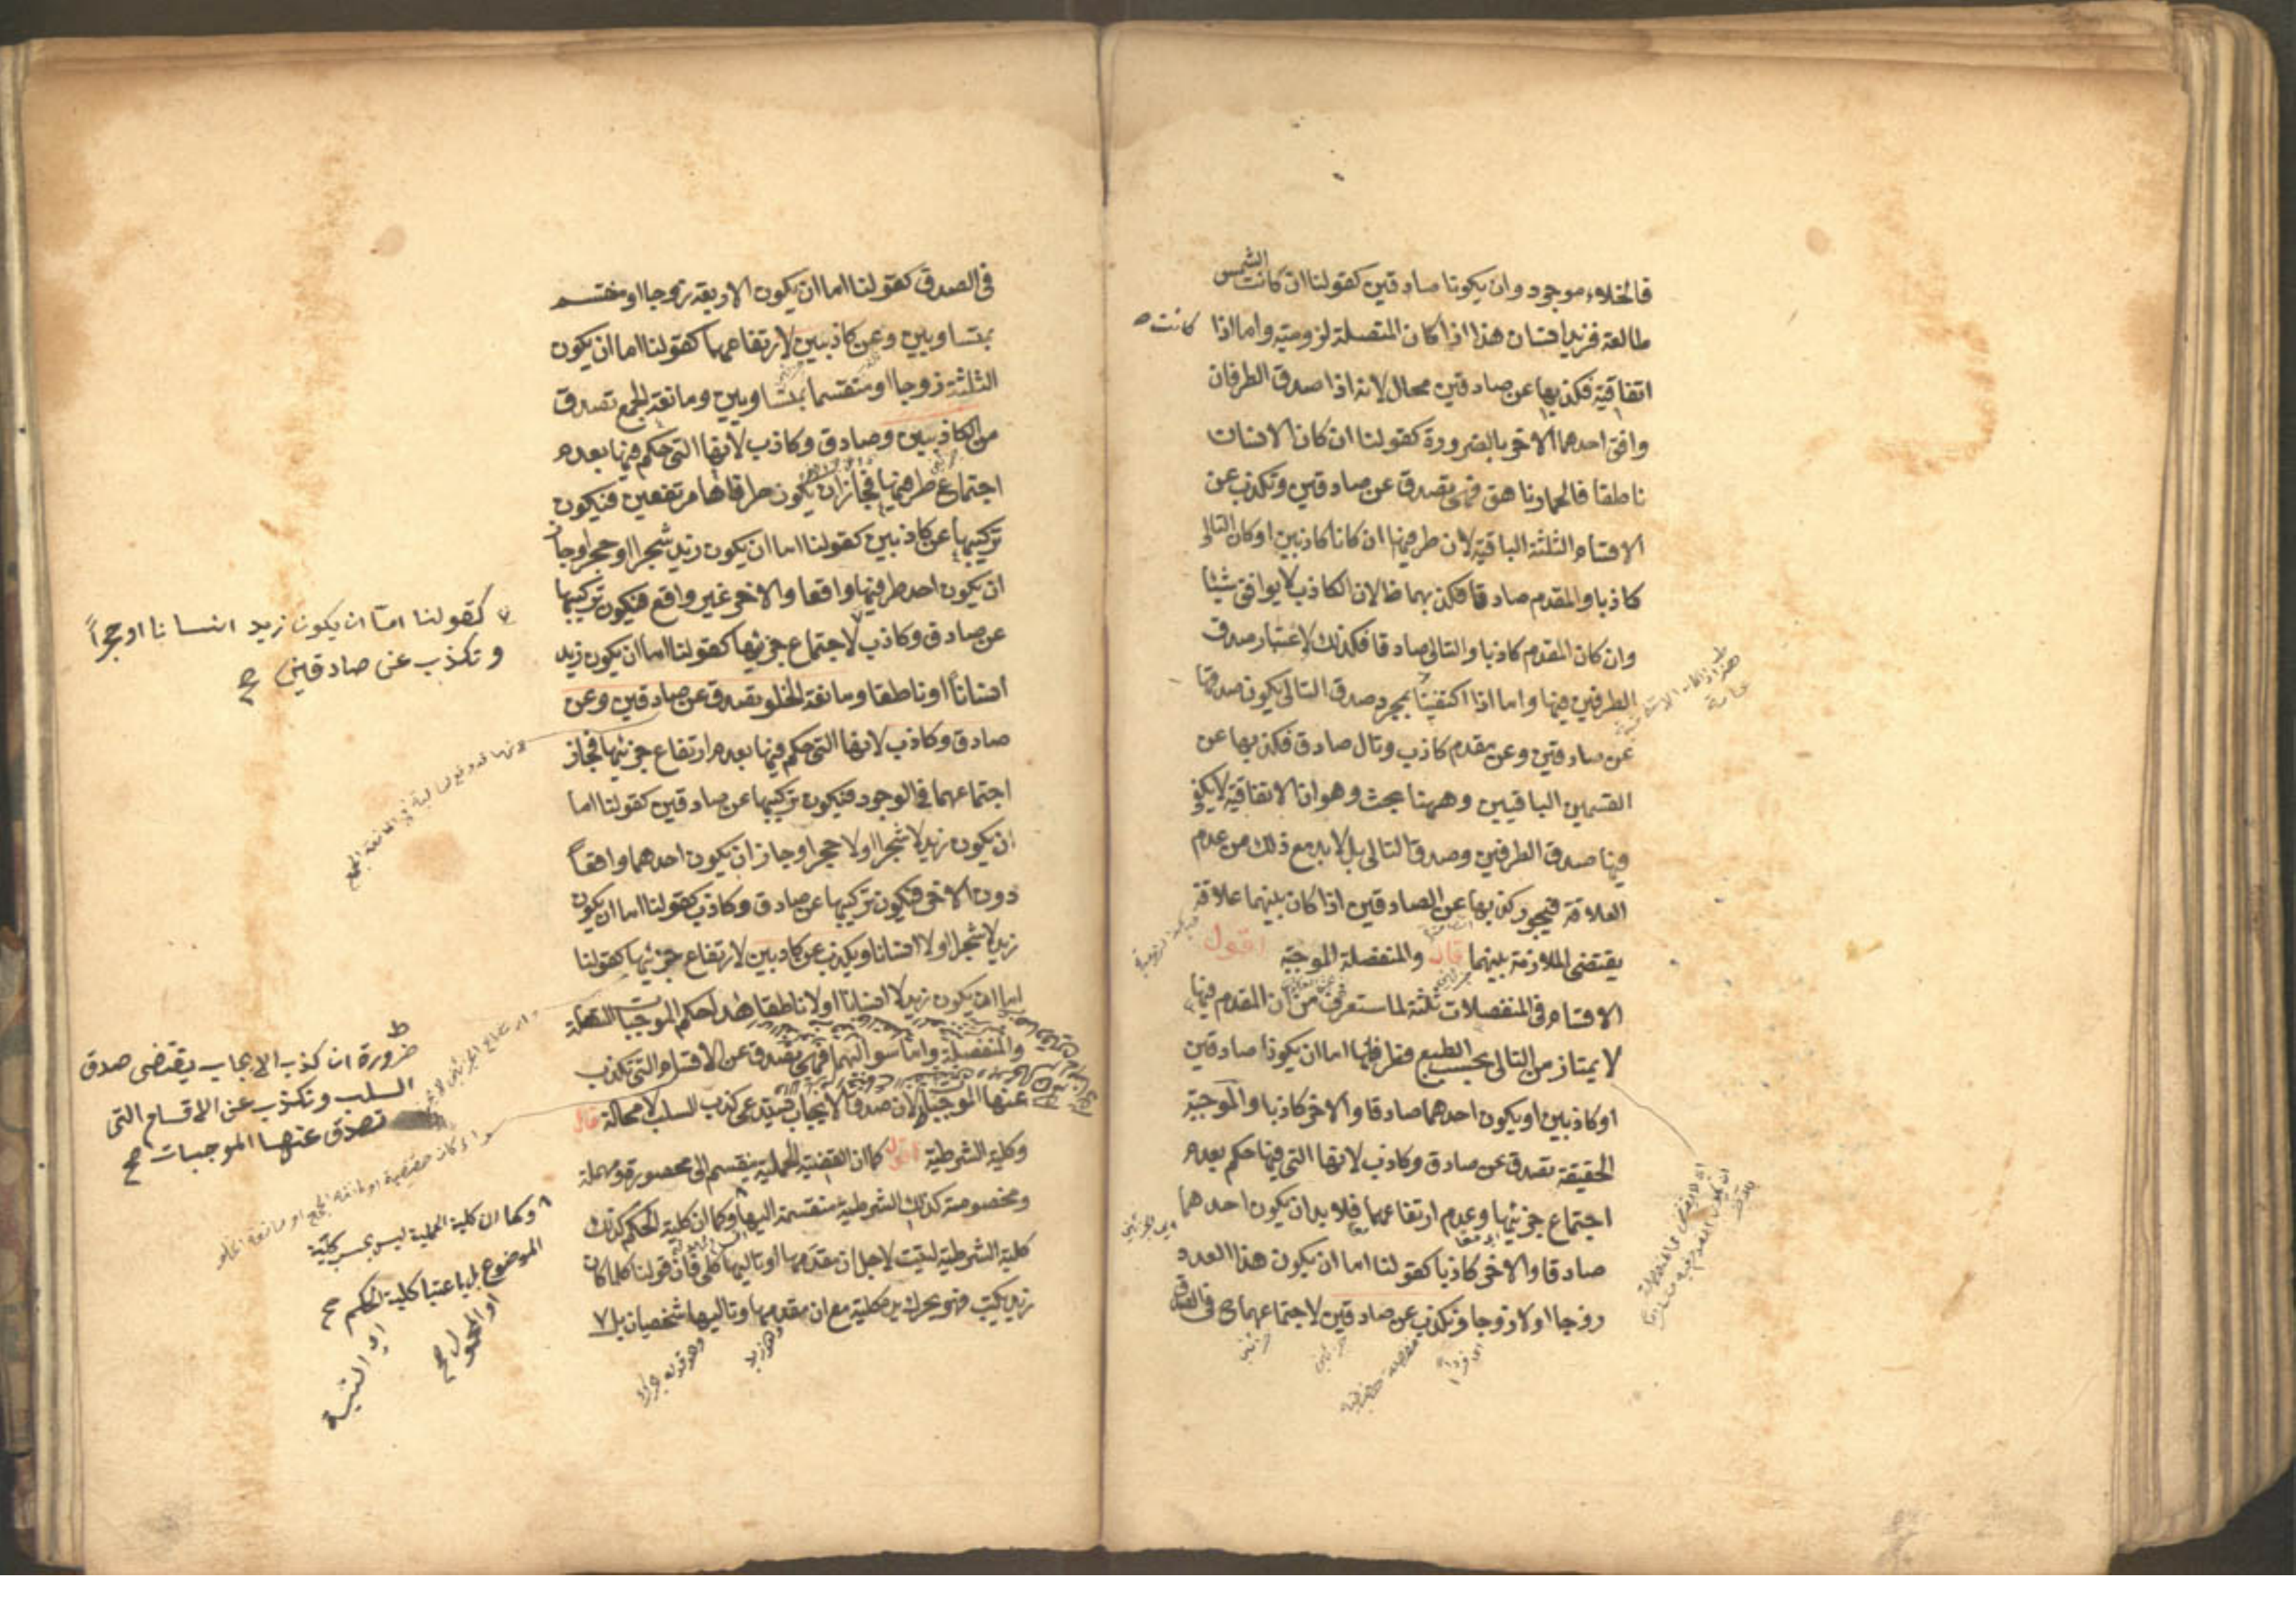 فالخلاء موجود وان يكونا صادقين كقولنا ان كانت الشمس
طالعة فزيد انسان هذا اذا كان المتصلة لزومية واما اذا كانت
اتفاقية فكذبها عن صادقين محال لانه اذا صدق الطرفان
وافق احدهما الاخر بالضرورة كقولنا ان كان الانسان
ناطقا فالحمار ناهق فهى تصدق عن صادقين وتكذب عن
الاقسام الثلثة الباقية لان طرفيها ان كانا كاذبين او كان التالى
كاذبا والمقدم صادقا فكذبهما ظ لان الكاذب لا يوافق شيئا
وان كان المقدم كاذبا والتالى صادقا فكذلك لاعتبار صدق
الطرفين فيها واما اذا اكتفينا بمجرد صدق التالى يكون صدقها
عن صادقين وعن مقدم كاذب وتال صادق فكذبها عن
القسمين الباقيين وههنا بحث وهو ان الاتفاقية لا يكفى
فيها صدق الطرفين وصدق التالى بل لا بد مع ذلك من عدم
العلاقة فيجوز كذبها عن الصادقين اذا كان بينهما علاقة
يقتضى الملازمة بينهما قال والمنفصلة الموجبة اقول
الاقسام فى المنفصلات ثلثة لما ستعرف من ان المقدم فيها
لا يمتاز من التالى بحسب الطبع فطرفاها اما ان يكونا صادقين
او كاذبين او يكون احدهما صادقا والاخر كاذبا والموجبة
الحقيقة تصدق عن صادق وكاذب لانها التى فيها حكم بعدم
اجتماع جزئيها وعدم ارتفاعهما فلا بد ان يكون احدهما
صادقا والاخر كاذبا كقولنا اما ان يكون هذا العدد
زوجا او لا زوجا وتكذب عن صادقين لاجتماعهما ح فى الصدق
فى الصدق كقولنا اما ان يكون الاربعة زوجا او منقسم
بمتساويين وعن كاذبين لارتفاعهما كقولنا اما ان يكون
الثلثة زوجا او منقسما بمتساويين ومانعة الجمع تصدق
من الكاذبين وصادق وكاذب لانها التى حكم فيها بعدم
اجتماع طرفيها فجاز ان يكون طرفاها مرتفعين فيكون
تركيبها عن كاذبين كقولنا اما ان يكون زيد شجرا او حجرا وجاز
ان يكون احد طرفيها واقعا والاخر غير واقع فيكون تركيبها
عن صادق وكاذب لاجتماع جزئيها كقولنا اما ان يكون زيد
انسانا او ناطقا ومانعة الخلو تصدق عن صادقين وعن
صادق وكاذب لانها التى حكم فيها بعدم ارتفاع جزئيها فجاز
اجتماعهما فى الوجود فيكون تركيبها عن صادقين كقولنا اما
ان يكون زيد لا شجرا او لا حجرا وجاز ان يكون احدهما واقعاً
دون الاخر فيكون تركيبها عن صادق وكاذب كقولنا اما ان يكون
زيد لا شجرا او لا انسانا ويكذب عن كاذبين لارتفاع جزئيها كقولنا
اما ان يكون زيد لا انسانا او لا ناطقا هذا حكم الموجبات المتصلة
والمنفصلة واما سوالبهما فهى تصدق عن الاقسام التى تكذب
عنها الموجبات لان صدق الايجاب يستدعى كذب السلب لا محالة قال
وكلية الشرطية اقول كما ان القضية الحملية ينقسم الى محصورة ومهملة
ومخصوصة كذلك الشرطية منقسمة اليها وكما ان كلية الحكم كذلك
كلية الشرطية ليست لاجل ان مقدمها او تاليها كلى فان قولنا كلما كان
زيد يكتب فهو يحرك يده كلية مع ان مقدمها وتاليها شخصيان بل
كقولنا امّا ان يكون زيد انسانا او حجراً
وتكذب عن صادقين صح
ضرورة ان كذب الايجاب يقتضى صدق
السلب وتكذب عن الاقسام التى
تصدق عنها الموجبات صح
وكما ان كلية الحملية ليس بحسب كلية
الموضوع او المحمول بل باعتبار كلية الحكم صح